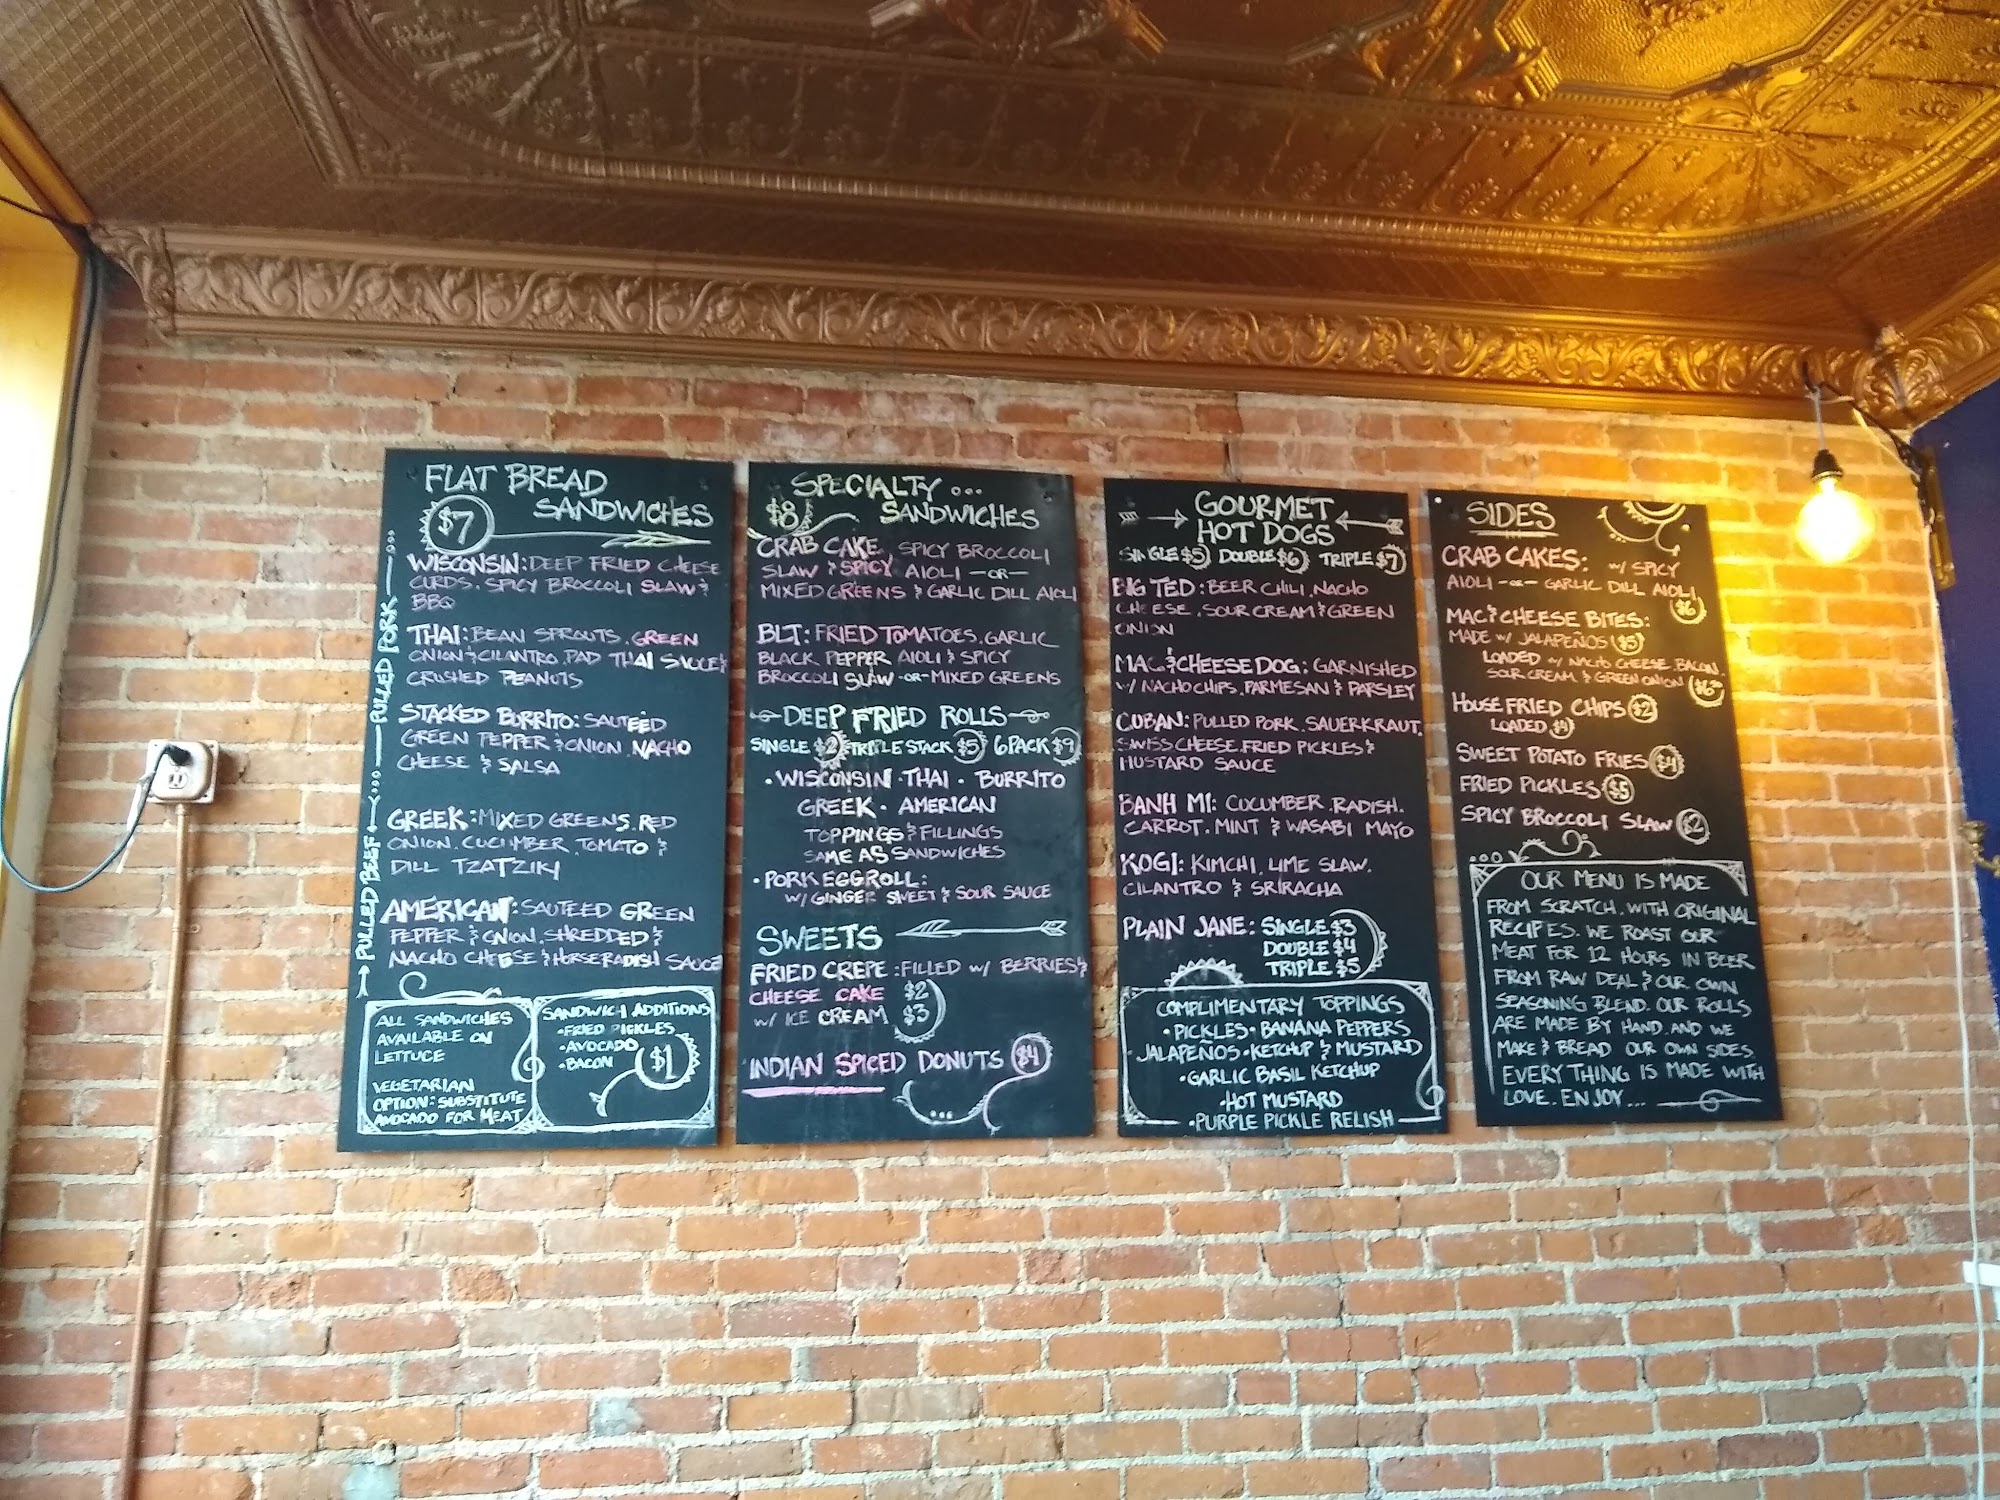 FLAT BREAD
SANDWICHES
$7
WISCONSIN: DEEP FRIED CHEESE
CURDS. SPICY BROCCOLI SLAW &
BBQ
THAI: BEAN SPROUTS. GREEN
ONION & CILANTRO. PAD THAI SAUCE &
CRUSHED PEANUTS
STACKED BURRITO: SAUTEED
GREEN PEPPER & ONION. NACHO
CHEESE & SALSA
GREEK: MIXED GREENS. RED
ONION. CUCUMBER. TOMATO &
DILL TZATZIKI
AMERICAN: SAUTEED GREEN
PEPPER & ONION. SHREDDED &
NACHO CHEESE & HORSERADISH SAUCE
PULLED BEEF PULLED PORK
ALL SANDWICHES
AVAILABLE ON
LETTUCE
VEGETARIAN
OPTION: SUBSTITUTE
AVOCADO FOR MEAT
SANDWICH ADDITIONS
• FRIED PICKLES
• AVOCADO
• BACON
$1
SPECIALTY...
$8 SANDWICHES
CRAB CAKE, SPICY BROCCOLI
SLAW & SPICY AIOLI -OR-
MIXED GREENS & GARLIC DILL AIOLI
BLT: FRIED TOMATOES. GARLIC
BLACK PEPPER AIOLI & SPICY
BROCCOLI SLAW -OR- MIXED GREENS
DEEP FRIED ROLLS
SINGLE $2 TRIPLE STACK $5 6 PACK $9
• WISCONSIN • THAI • BURRITO
GREEK • AMERICAN
TOPPINGS & FILLINGS
SAME AS SANDWICHES
• PORK EGGROLL:
W/ GINGER SWEET & SOUR SAUCE
SWEETS
FRIED CREPE: FILLED W/ BERRIES &
CHEESE CAKE $2
W/ ICE CREAM $3
INDIAN SPICED DONUTS $4
GOURMET
HOT DOGS
SINGLE $5 DOUBLE $6 TRIPLE $7
BIG TED: BEER CHILI. NACHO
CHEESE. SOUR CREAM & GREEN
ONION
MAC & CHEESE DOG: GARNISHED
W/ NACHO CHIPS. PARMESAN & PARSLEY
CUBAN: PULLED PORK. SAUERKRAUT.
SWISS CHEESE. FRIED PICKLES &
MUSTARD SAUCE
BANH MI: CUCUMBER. RADISH.
CARROT. MINT & WASABI MAYO
KOGI: KIMCHI. LIME SLAW.
CILANTRO & SRIRACHA
PLAIN JANE: SINGLE $3
DOUBLE $4
TRIPLE $5
COMPLIMENTARY TOPPINGS
• PICKLES • BANANA PEPPERS
JALAPEÑOS • KETCHUP & MUSTARD
• GARLIC BASIL KETCHUP
• HOT MUSTARD
• PURPLE PICKLE RELISH
SIDES
CRAB CAKES: W/ SPICY
AIOLI -OR- GARLIC DILL AIOLI
$6
MAC & CHEESE BITES:
MADE W/ JALAPEÑOS $5
LOADED W/ NACHO CHEESE. BACON.
SOUR CREAM & GREEN ONION
HOUSE FRIED CHIPS $2
LOADED $4
SWEET POTATO FRIES $4
FRIED PICKLES $5
SPICY BROCCOLI SLAW $2
OUR MENU IS MADE
FROM SCRATCH. WITH ORIGINAL
RECIPES. WE ROAST OUR
MEAT FOR 12 HOURS IN BEER
FROM RAW DEAL & OUR OWN
SEASONING BLEND. OUR ROLLS
ARE MADE BY HAND. AND WE
MAKE & BREAD OUR OWN SIDES.
EVERY THING IS MADE WITH
LOVE.. ENJOY...